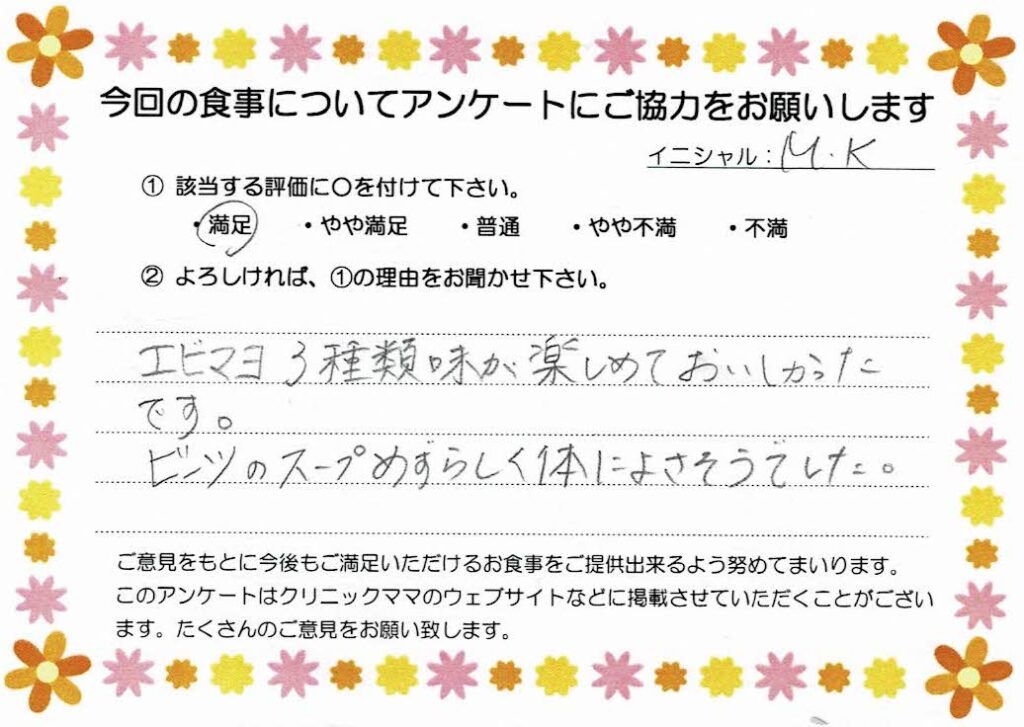 今回の食事についてアンケートにご協力をお願いします
イニシャル：M.K
① 該当する評価に〇を付けて下さい。
・満足 ・やや満足 ・普通 ・やや不満 ・不満
② よろしければ、①の理由をお聞かせ下さい。
エビマヨ 3種類味が楽しめておいしかった
です。
ビーンツのスープめずらしく体によさそうでした。
ご意見をもとに今後もご満足いただけるお食事をご提供出来るよう努めてまいります。
このアンケートはクリニックママのウェブサイトなどに掲載させていただくことがござい
ます。たくさんのご意見をお願い致します。